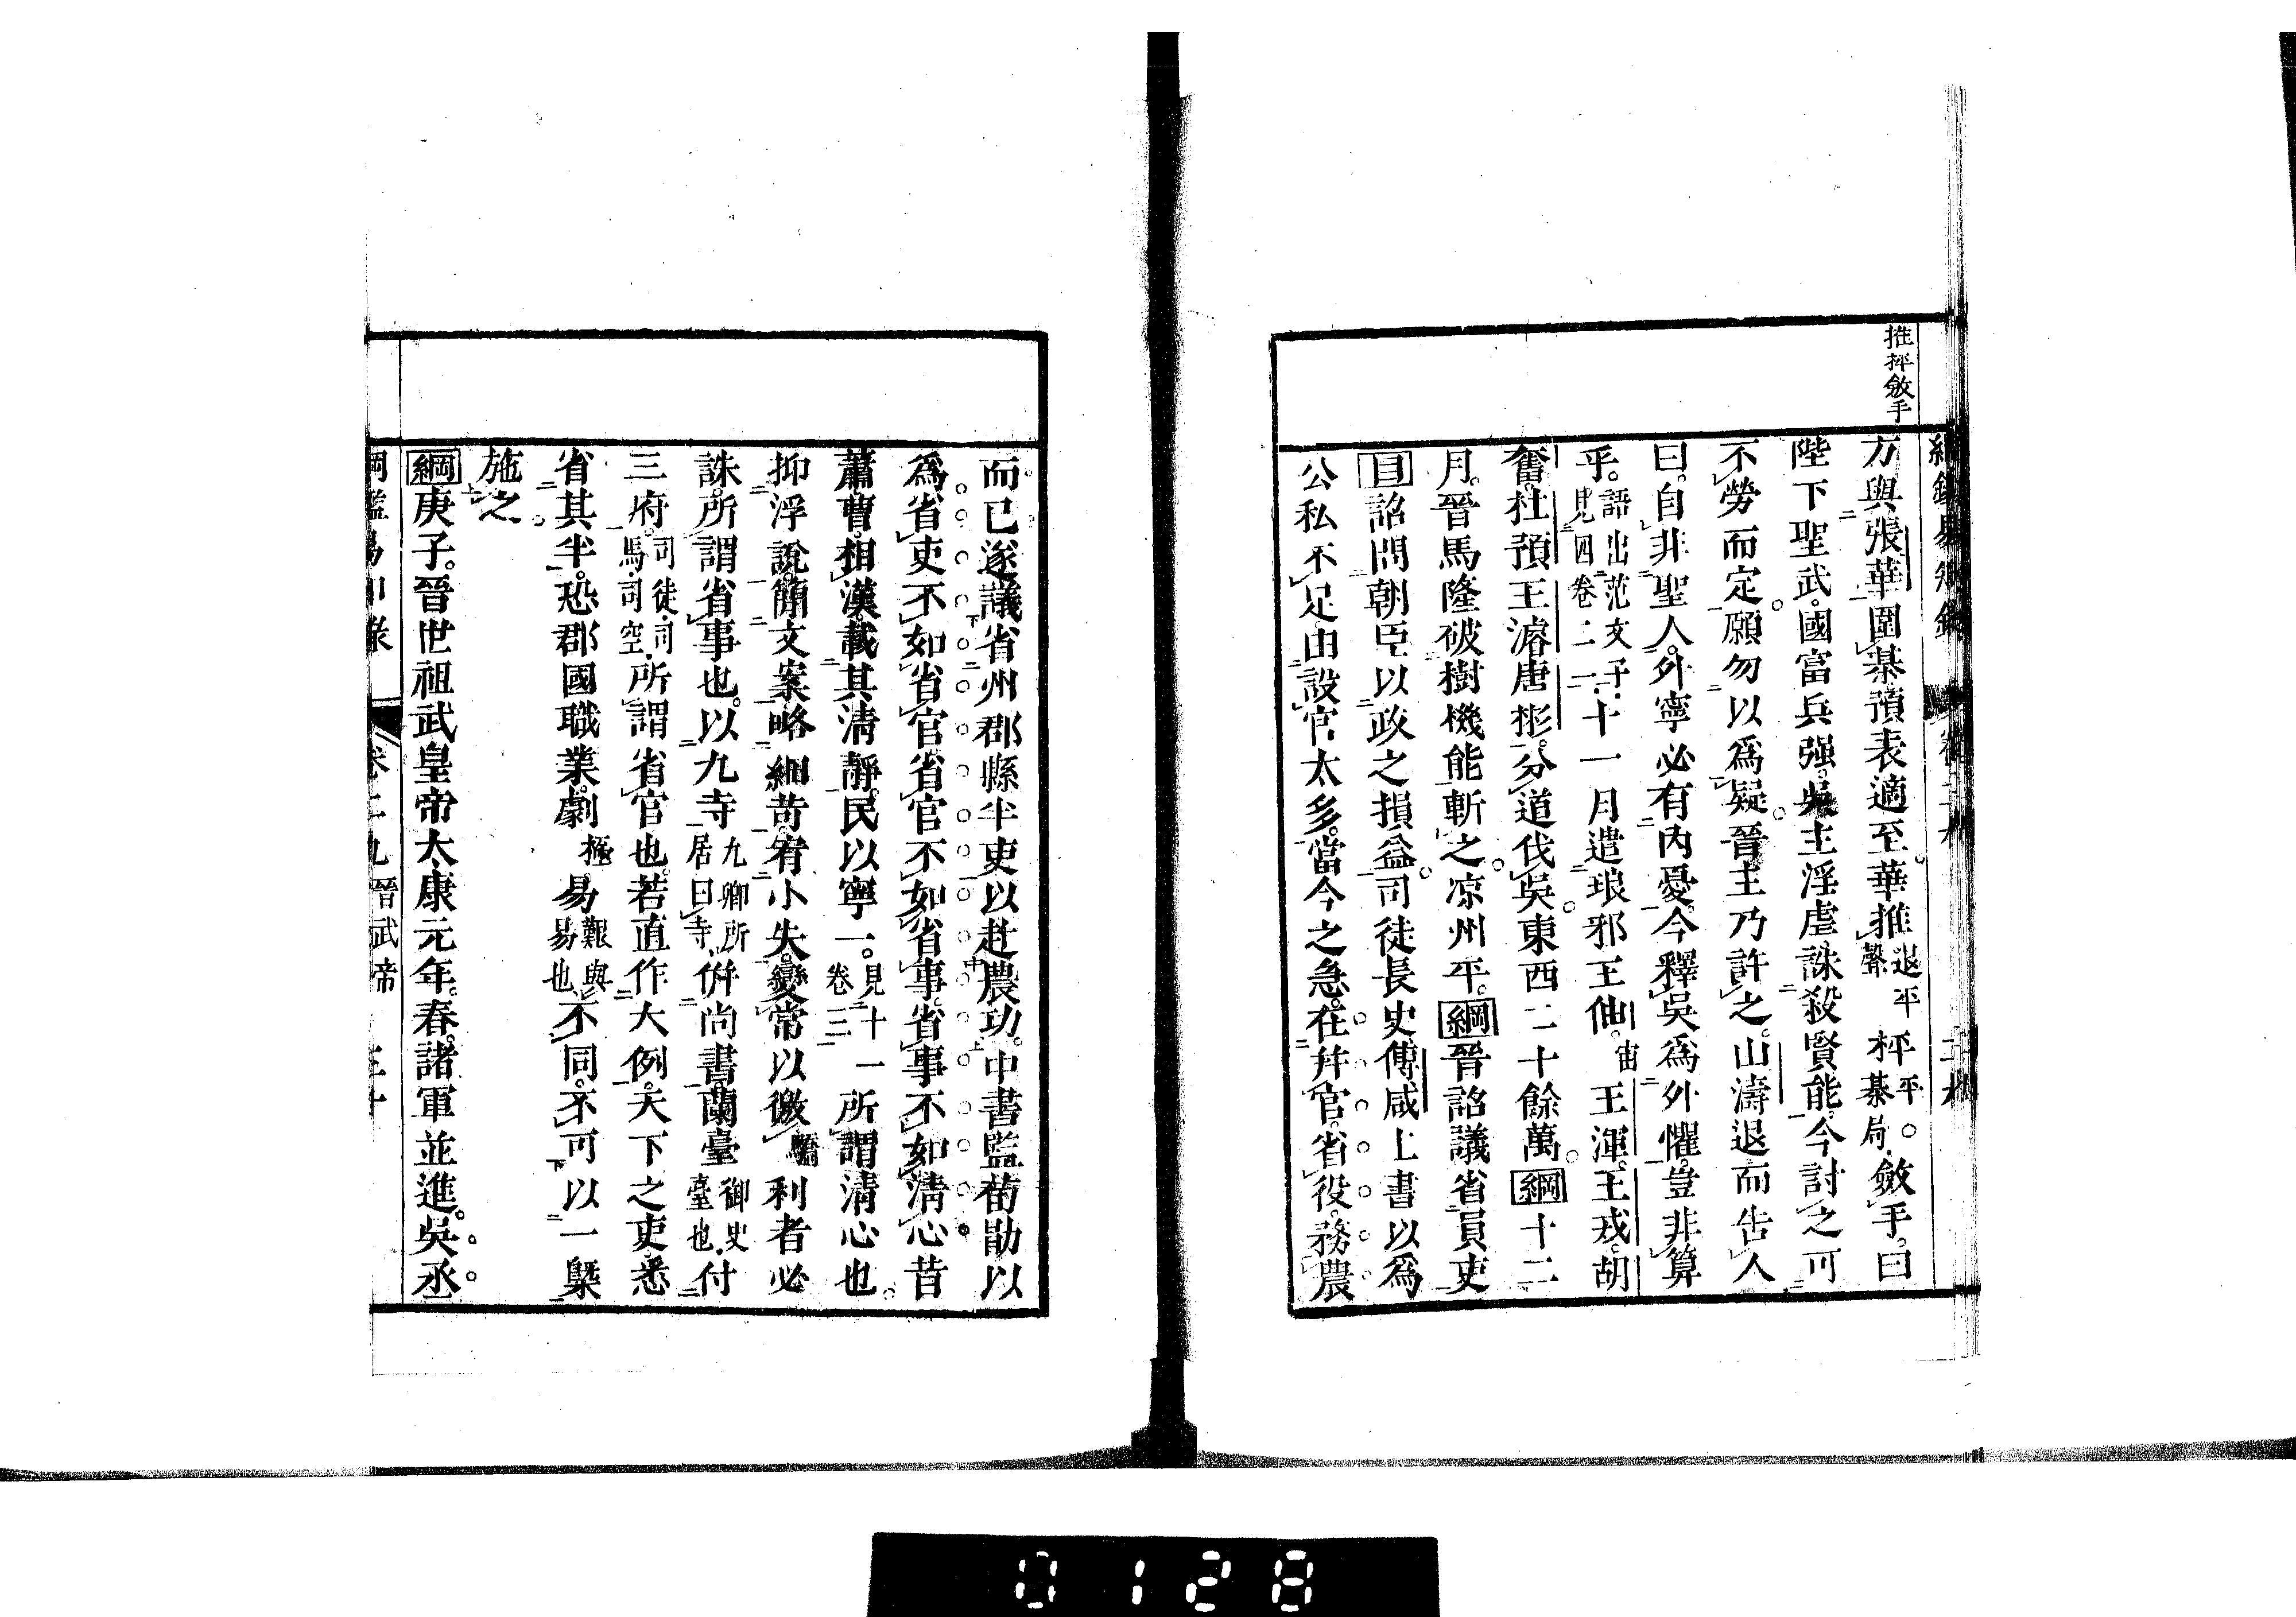 推枰斂手
方與張華圍棊預表適至華推退平聲枰平棊局斂手曰
陛下聖武國富兵强吳主淫虐誅殺賢能今討之可
不勞而定願勿以爲疑晉主乃許之山濤退而告人
曰自非聖人外寧必有內憂今釋吳爲外懼豈非算
乎語出范文子見四卷二一十一月遣琅邪王伷宙王渾王戎胡
奮杜預王濬唐彬分道伐吳東西二十餘萬綱十二
月晉馬隆破樹機能斬之凉州平綱晉詔議省員吏
目詔問朝臣以政之損益司徒長史傅咸上書以爲
公私不足由設官太多當今之急在幷官省役務農
而已遂議省州郡縣半吏以赴農功中書監荀勖以
爲省吏不如省官省官不如省事省事不如淸心昔
蕭曹相漢載其淸靜民以寧一見十一卷三所謂淸心也
抑浮說簡文案略細苛宥小失變常以徼驕利者必
誅所謂省事也以九寺九卿所居曰寺倂尚書蘭臺御史臺也付
三府司徒司馬司空所謂省官也若直作大例天下之吏悉
省其半恐郡國職業劇極易艱易與也不同不可以一槩
施之
綱庚子晉世祖武皇帝太康元年春諸軍並進吳丞
卷二九晉武帝
0128